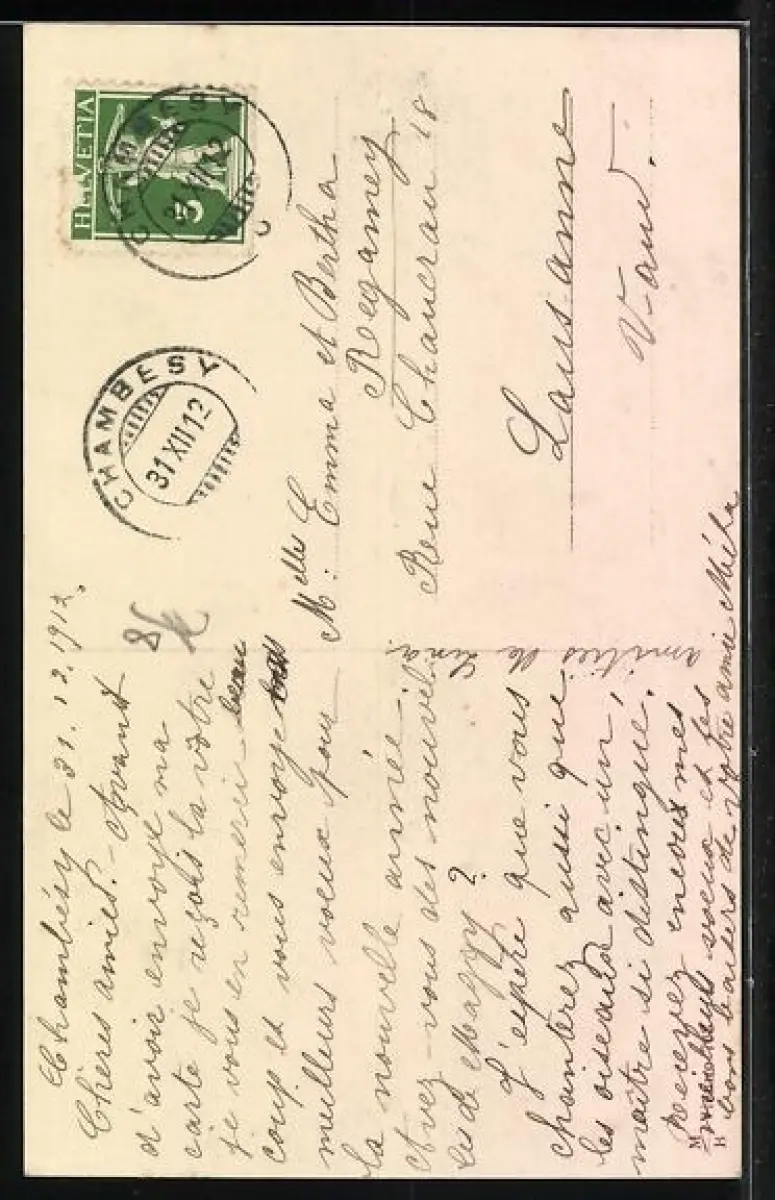 Chambésy le 31.12.1912.
Chères amies. - Avant
d'avoir envoyé ma
carte je reçois la vôtre
je vous en remercie beau
coup et vous envoye
meilleurs voeux pour
la nouvelle année.
Avez-vous des nouvel
les de Maggy?
J'espère que vous
chanterez aussi que
les oiseaux avec un
maître si distingué.
Recevez encore mes
voeux et les
bons baisers de votre amie Méta
amitiés de Lina.
HELVETIA
5
CHAMBESY
31 XII 12
CHAMBESY
31 XII 12
Melles
M. Emma et Bertha
Regamey
Rue Chaucrau 18
Lausanne
Vaud.
M
H